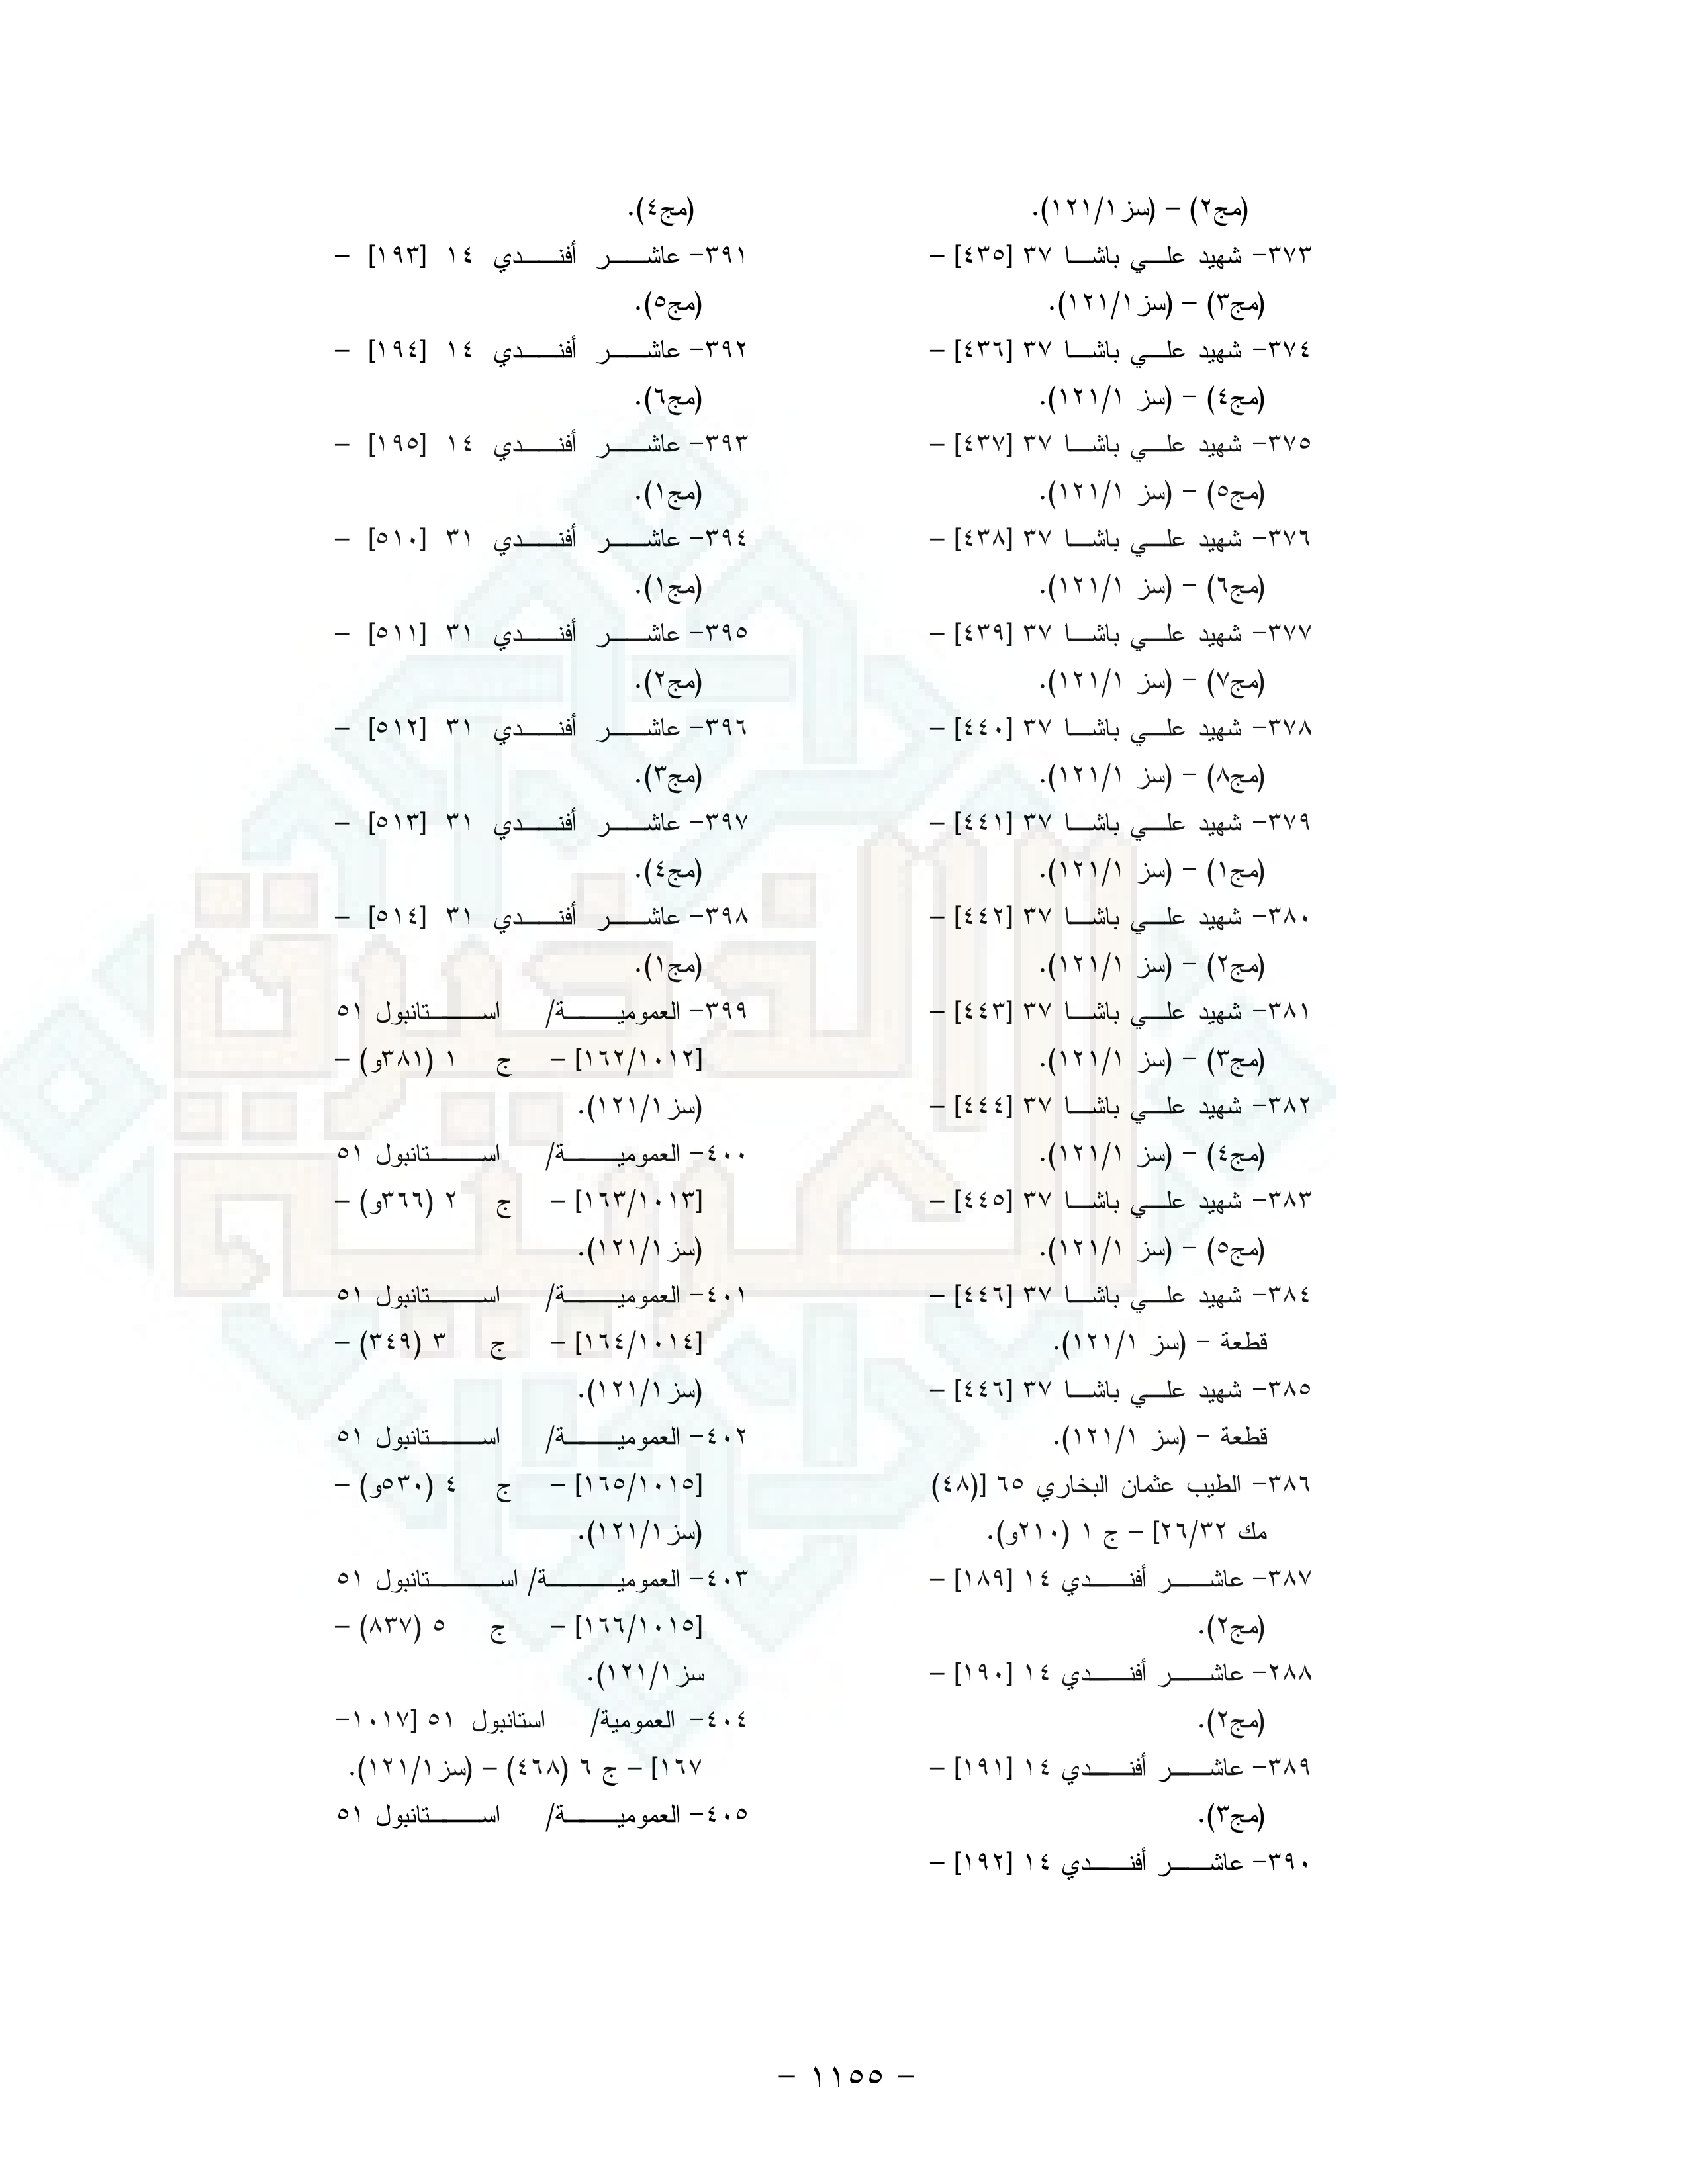 (مج٢) – (سز١/١٢١).
٣٧٣- شهيد علي باشا ٣٧ [٤٣٥] –
(مج٣) – (سز١/١٢١).
٣٧٤- شهيد علي باشا ٣٧ [٤٣٦] –
(مج٤) – (سز ١/١٢١).
٣٧٥- شهيد علي باشا ٣٧ [٤٣٧] –
(مج٥) – (سز ١/١٢١).
٣٧٦- شهيد علي باشا ٣٧ [٤٣٨] –
(مج٦) – (سز ١/١٢١).
٣٧٧- شهيد علي باشا ٣٧ [٤٣٩] –
(مج٧) – (سز ١/١٢١).
٣٧٨- شهيد علي باشا ٣٧ [٤٤٠] –
(مج٨) – (سز ١/١٢١).
٣٧٩- شهيد علي باشا ٣٧ [٤٤١] –
(مج١) – (سز ١/١٢١).
٣٨٠- شهيد علي باشا ٣٧ [٤٤٢] –
(مج٢) – (سز ١/١٢١).
٣٨١- شهيد علي باشا ٣٧ [٤٤٣] –
(مج٣) – (سز ١/١٢١).
٣٨٢- شهيد علي باشا ٣٧ [٤٤٤] –
(مج٤) – (سز ١/١٢١).
٣٨٣- شهيد علي باشا ٣٧ [٤٤٥] –
(مج٥) – (سز ١/١٢١).
٣٨٤- شهيد علي باشا ٣٧ [٤٤٦] –
قطعة – (سز ١/١٢١).
٣٨٥- شهيد علي باشا ٣٧ [٤٤٦] –
قطعة – (سز ١/١٢١).
٣٨٦- الطيب عثمان البخاري ٦٥ [(٤٨)
مك ٢٦/٣٢] – ج ١ (٢١٠و).
٣٨٧- عاشر أفندي ١٤ [١٨٩] –
(مج٢).
٢٨٨- عاشر أفندي ١٤ [١٩٠] –
(مج٢).
٣٨٩- عاشر أفندي ١٤ [١٩١] –
(مج٣).
٣٩٠- عاشر أفندي ١٤ [١٩٢] –
(مج٤).
٣٩١- عاشر أفندي ١٤ [١٩٣] –
(مج٥).
٣٩٢- عاشر أفندي ١٤ [١٩٤] –
(مج٦).
٣٩٣- عاشر أفندي ١٤ [١٩٥] –
(مج١).
٣٩٤- عاشر أفندي ٣١ [٥١٠] –
(مج١).
٣٩٥- عاشر أفندي ٣١ [٥١١] –
(مج٢).
٣٩٦- عاشر أفندي ٣١ [٥١٢] –
(مج٣).
٣٩٧- عاشر أفندي ٣١ [٥١٣] –
(مج٤).
٣٩٨- عاشر أفندي ٣١ [٥١٤] –
(مج١).
٣٩٩- العمومية/ استانبول ٥١
[١٦٢/١٠١٢] – ج ١ (٣٨١و) –
(سز١/١٢١).
٤٠٠- العمومية/ استانبول ٥١
[١٦٣/١٠١٣] – ج ٢ (٣٦٦و) –
(سز١/١٢١).
٤٠١- العمومية/ استانبول ٥١
[١٦٤/١٠١٤] – ج ٣ (٣٤٩) –
(سز١/١٢١).
٤٠٢- العمومية/ استانبول ٥١
[١٦٥/١٠١٥] – ج ٤ (٥٣٠و) –
(سز١/١٢١).
٤٠٣- العمومية/ استانبول ٥١
[١٦٦/١٠١٥] – ج ٥ (٨٣٧) –
سز١/١٢١).
٤٠٤- العمومية/ استانبول ٥١ [١٠١٧-
١٦٧] – ج ٦ (٤٦٨) – (سز١/١٢١).
٤٠٥- العمومية/ استانبول ٥١
الذخيرة
العربية
– ١١٥٥ –